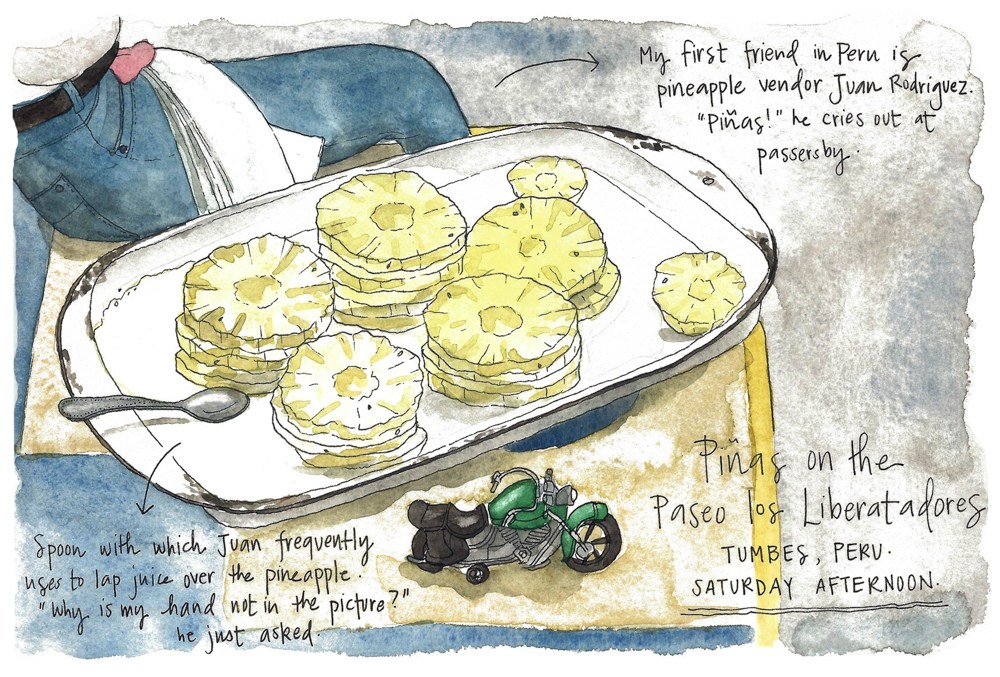 My first friend in Peru is
pineapple vendor Juan Rodriguez.
"Piñas!" he cries out at
passersby.
Piñas on the
Paseo los Liberatadores
TUMBES, PERU.
SATURDAY AFTERNOON.
Spoon with which Juan frequently
uses to lap juice over the pineapple.
"Why is my hand not in the picture?"
he just asked.